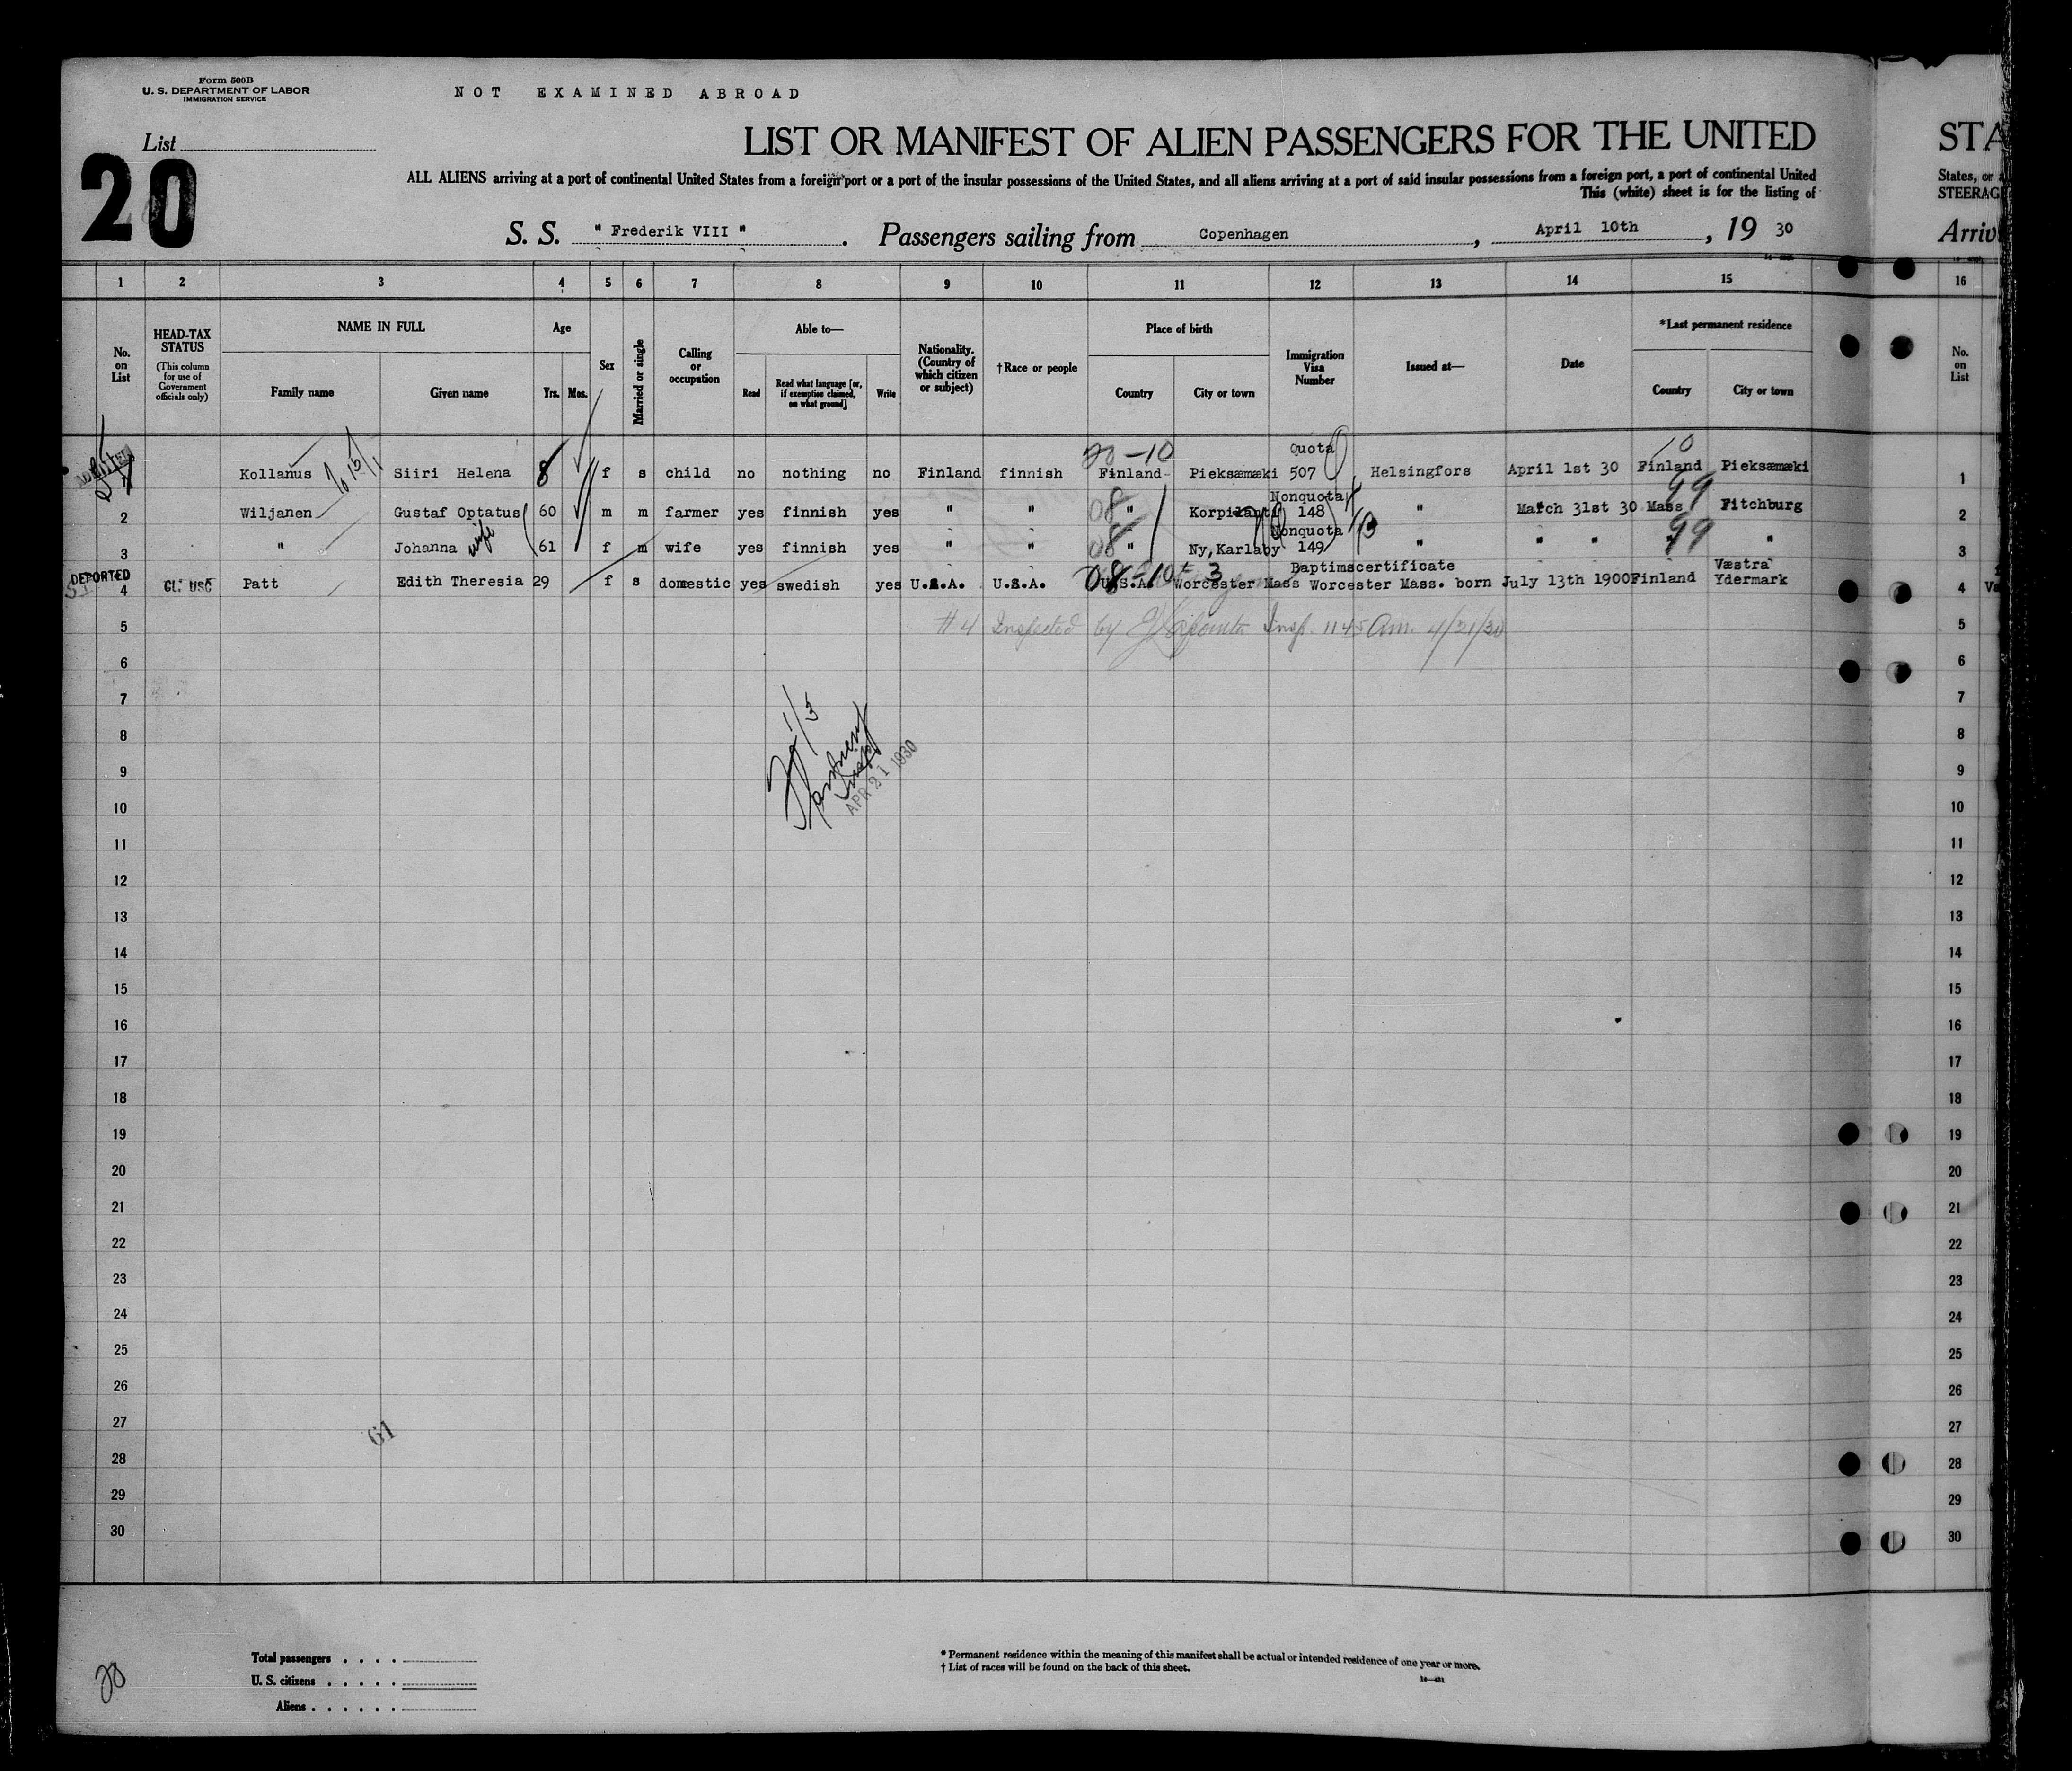 Form 500B
U. S. DEPARTMENT OF LABOR
IMMIGRATION SERVICE
NOT EXAMINED ABROAD
List
20
LIST OR MANIFEST OF ALIEN PASSENGERS FOR THE UNITED
STA
ALL ALIENS arriving at a port of continental United States from a foreign port or a port of the insular possessions of the United States, and all aliens arriving at a port of said insular possessions from a foreign port, a port of continental United
States, or a
This (white) sheet is for the listing of
STEERAG
S. S. " Frederik VIII ". Passengers sailing from Copenhagen, April 10th, 19 30
Arriv
1 2 3 4 5 6 7 8 9 10 11 12 13 14 15 16
No. on List
HEAD-TAX STATUS (This column for use of Government officials only)
NAME IN FULL
Family name
Given name
Age
Yrs. Mos.
Sex
Married or single
Calling or occupation
Able to—
Read
Read what language [or, if exemption claimed, on what ground]
Write
Nationality. (Country of which citizen or subject)
†Race or people
Place of birth
Country
City or town
Immigration Visa Number
Issued at—
Date
*Last permanent residence
Country
City or town
No. on List
20-10
Quota
10
Kollanus Siiri Helena 8 f s child no nothing no Finland finnish Finland Pieksæmæki 507 Helsingfors April 1st 30 Finland Pieksæmæki 1
Nonquota
99
2 Wiljanen Gustaf Optatus 60 m m farmer yes finnish yes " " 08 " 148 " March 31st 30 Mass Fitchburg 2
Nonquota
99
3 " Johanna wife 61 f m wife yes finnish yes " " 08 " Ny,Karlaby 149 " " " " " 3
DEPORTED
Baptimscertificate
Væstra
4 CL. USC Patt Edith Theresia 29 f s domestic yes swedish yes U.S.A. U.S.A. U.S.A. Worcester Mass Worcester Mass. born July 13th 1900 Finland Ydermark 4
5 #4 Inspected by Insp. 1145 Am. 4/21/30 5
6 6
7 7
8 8
9 9
APR 21 1930
10 10
11 11
12 12
13 13
14 14
15 15
16 16
17 17
18 18
19 19
20 20
21 21
22 22
23 23
24 24
25 25
26 26
27 27
61
28 28
29 29
30 30
20
Total passengers . . . .
U. S. citizens . . . . .
Aliens . . . . . .
* Permanent residence within the meaning of this manifest shall be actual or intended residence of one year or more.
† List of races will be found on the back of this sheet.